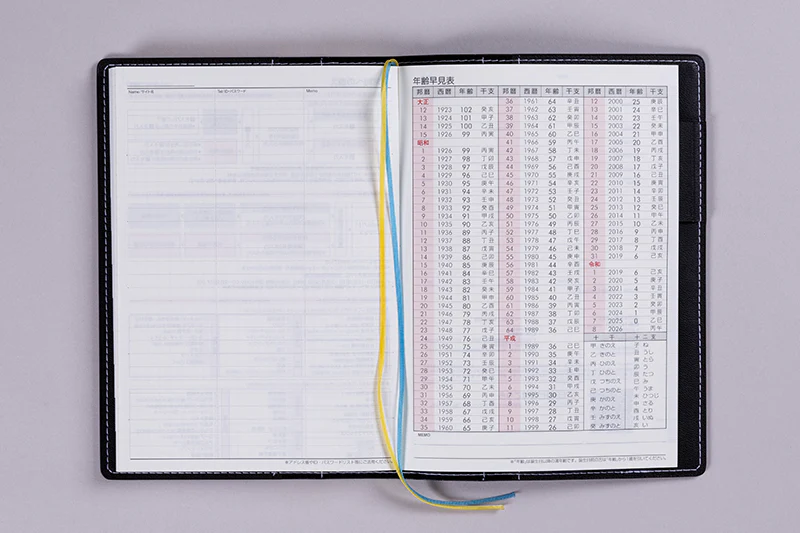 Name／サイト名 Tel・ID・パスワード Memo
※アドレス帳やID・パスワードリスト等にご活用ください。
年齢早見表
邦暦 西暦 年齢 干支
大正
12 1923 102 癸亥
13 1924 101 甲子
14 1925 100 乙丑
15 1926 99 丙寅
昭和
1 1926 99 丙寅
2 1927 98 丁卯
3 1928 97 戊辰
4 1929 96 己巳
5 1930 95 庚午
6 1931 94 辛未
7 1932 93 壬申
8 1933 92 癸酉
9 1934 91 甲戌
10 1935 90 乙亥
11 1936 89 丙子
12 1937 88 丁丑
13 1938 87 戊寅
14 1939 86 己卯
15 1940 85 庚辰
16 1941 84 辛巳
17 1942 83 壬午
18 1943 82 癸未
19 1944 81 甲申
20 1945 80 乙酉
21 1946 79 丙戌
22 1947 78 丁亥
23 1948 77 戊子
24 1949 76 己丑
25 1950 75 庚寅
26 1951 74 辛卯
27 1952 73 壬辰
28 1953 72 癸巳
29 1954 71 甲午
30 1955 70 乙未
31 1956 69 丙申
32 1957 68 丁酉
33 1958 67 戊戌
34 1959 66 己亥
35 1960 65 庚子
邦暦 西暦 年齢 干支
36 1961 64 辛丑
37 1962 63 壬寅
38 1963 62 癸卯
39 1964 61 甲辰
40 1965 60 乙巳
41 1966 59 丙午
42 1967 58 丁未
43 1968 57 戊申
44 1969 56 己酉
45 1970 55 庚戌
46 1971 54 辛亥
47 1972 53 壬子
48 1973 52 癸丑
49 1974 51 甲寅
50 1975 50 乙卯
51 1976 49 丙辰
52 1977 48 丁巳
53 1978 47 戊午
54 1979 46 己未
55 1980 45 庚申
56 1981 44 辛酉
57 1982 43 壬戌
58 1983 42 癸亥
59 1984 41 甲子
60 1985 40 乙丑
61 1986 39 丙寅
62 1987 38 丁卯
63 1988 37 戊辰
64 1989 36 己巳
平成
1 1989 36 己巳
2 1990 35 庚午
3 1991 34 辛未
4 1992 33 壬申
5 1993 32 癸酉
6 1994 31 甲戌
7 1995 30 乙亥
8 1996 29 丙子
9 1997 28 丁丑
10 1998 27 戊寅
11 1999 26 己卯
邦暦 西暦 年齢 干支
12 2000 25 庚辰
13 2001 24 辛巳
14 2002 23 壬午
15 2003 22 癸未
16 2004 21 甲申
17 2005 20 乙酉
18 2006 19 丙戌
19 2007 18 丁亥
20 2008 17 戊子
21 2009 16 己丑
22 2010 15 庚寅
23 2011 14 辛卯
24 2012 13 壬辰
25 2013 12 癸巳
26 2014 11 甲午
27 2015 10 乙未
28 2016 9 丙申
29 2017 8 丁酉
30 2018 7 戊戌
31 2019 6 己亥
令和
1 2019 6 己亥
2 2020 5 庚子
3 2021 4 辛丑
4 2022 3 壬寅
5 2023 2 癸卯
6 2024 1 甲辰
7 2025 0 乙巳
8 2026 丙午
十干 十二支
甲 きのえ 子 ね
乙 きのと 丑 うし
丙 ひのえ 寅 とら
丁 ひのと 卯 う
戊 つちのえ 辰 たつ
己 つちのと 巳 み
庚 かのえ 午 うま
辛 かのと 未 ひつじ
壬 みずのえ 申 さる
癸 みずのと 酉 とり
戌 いぬ
亥 い
MEMO